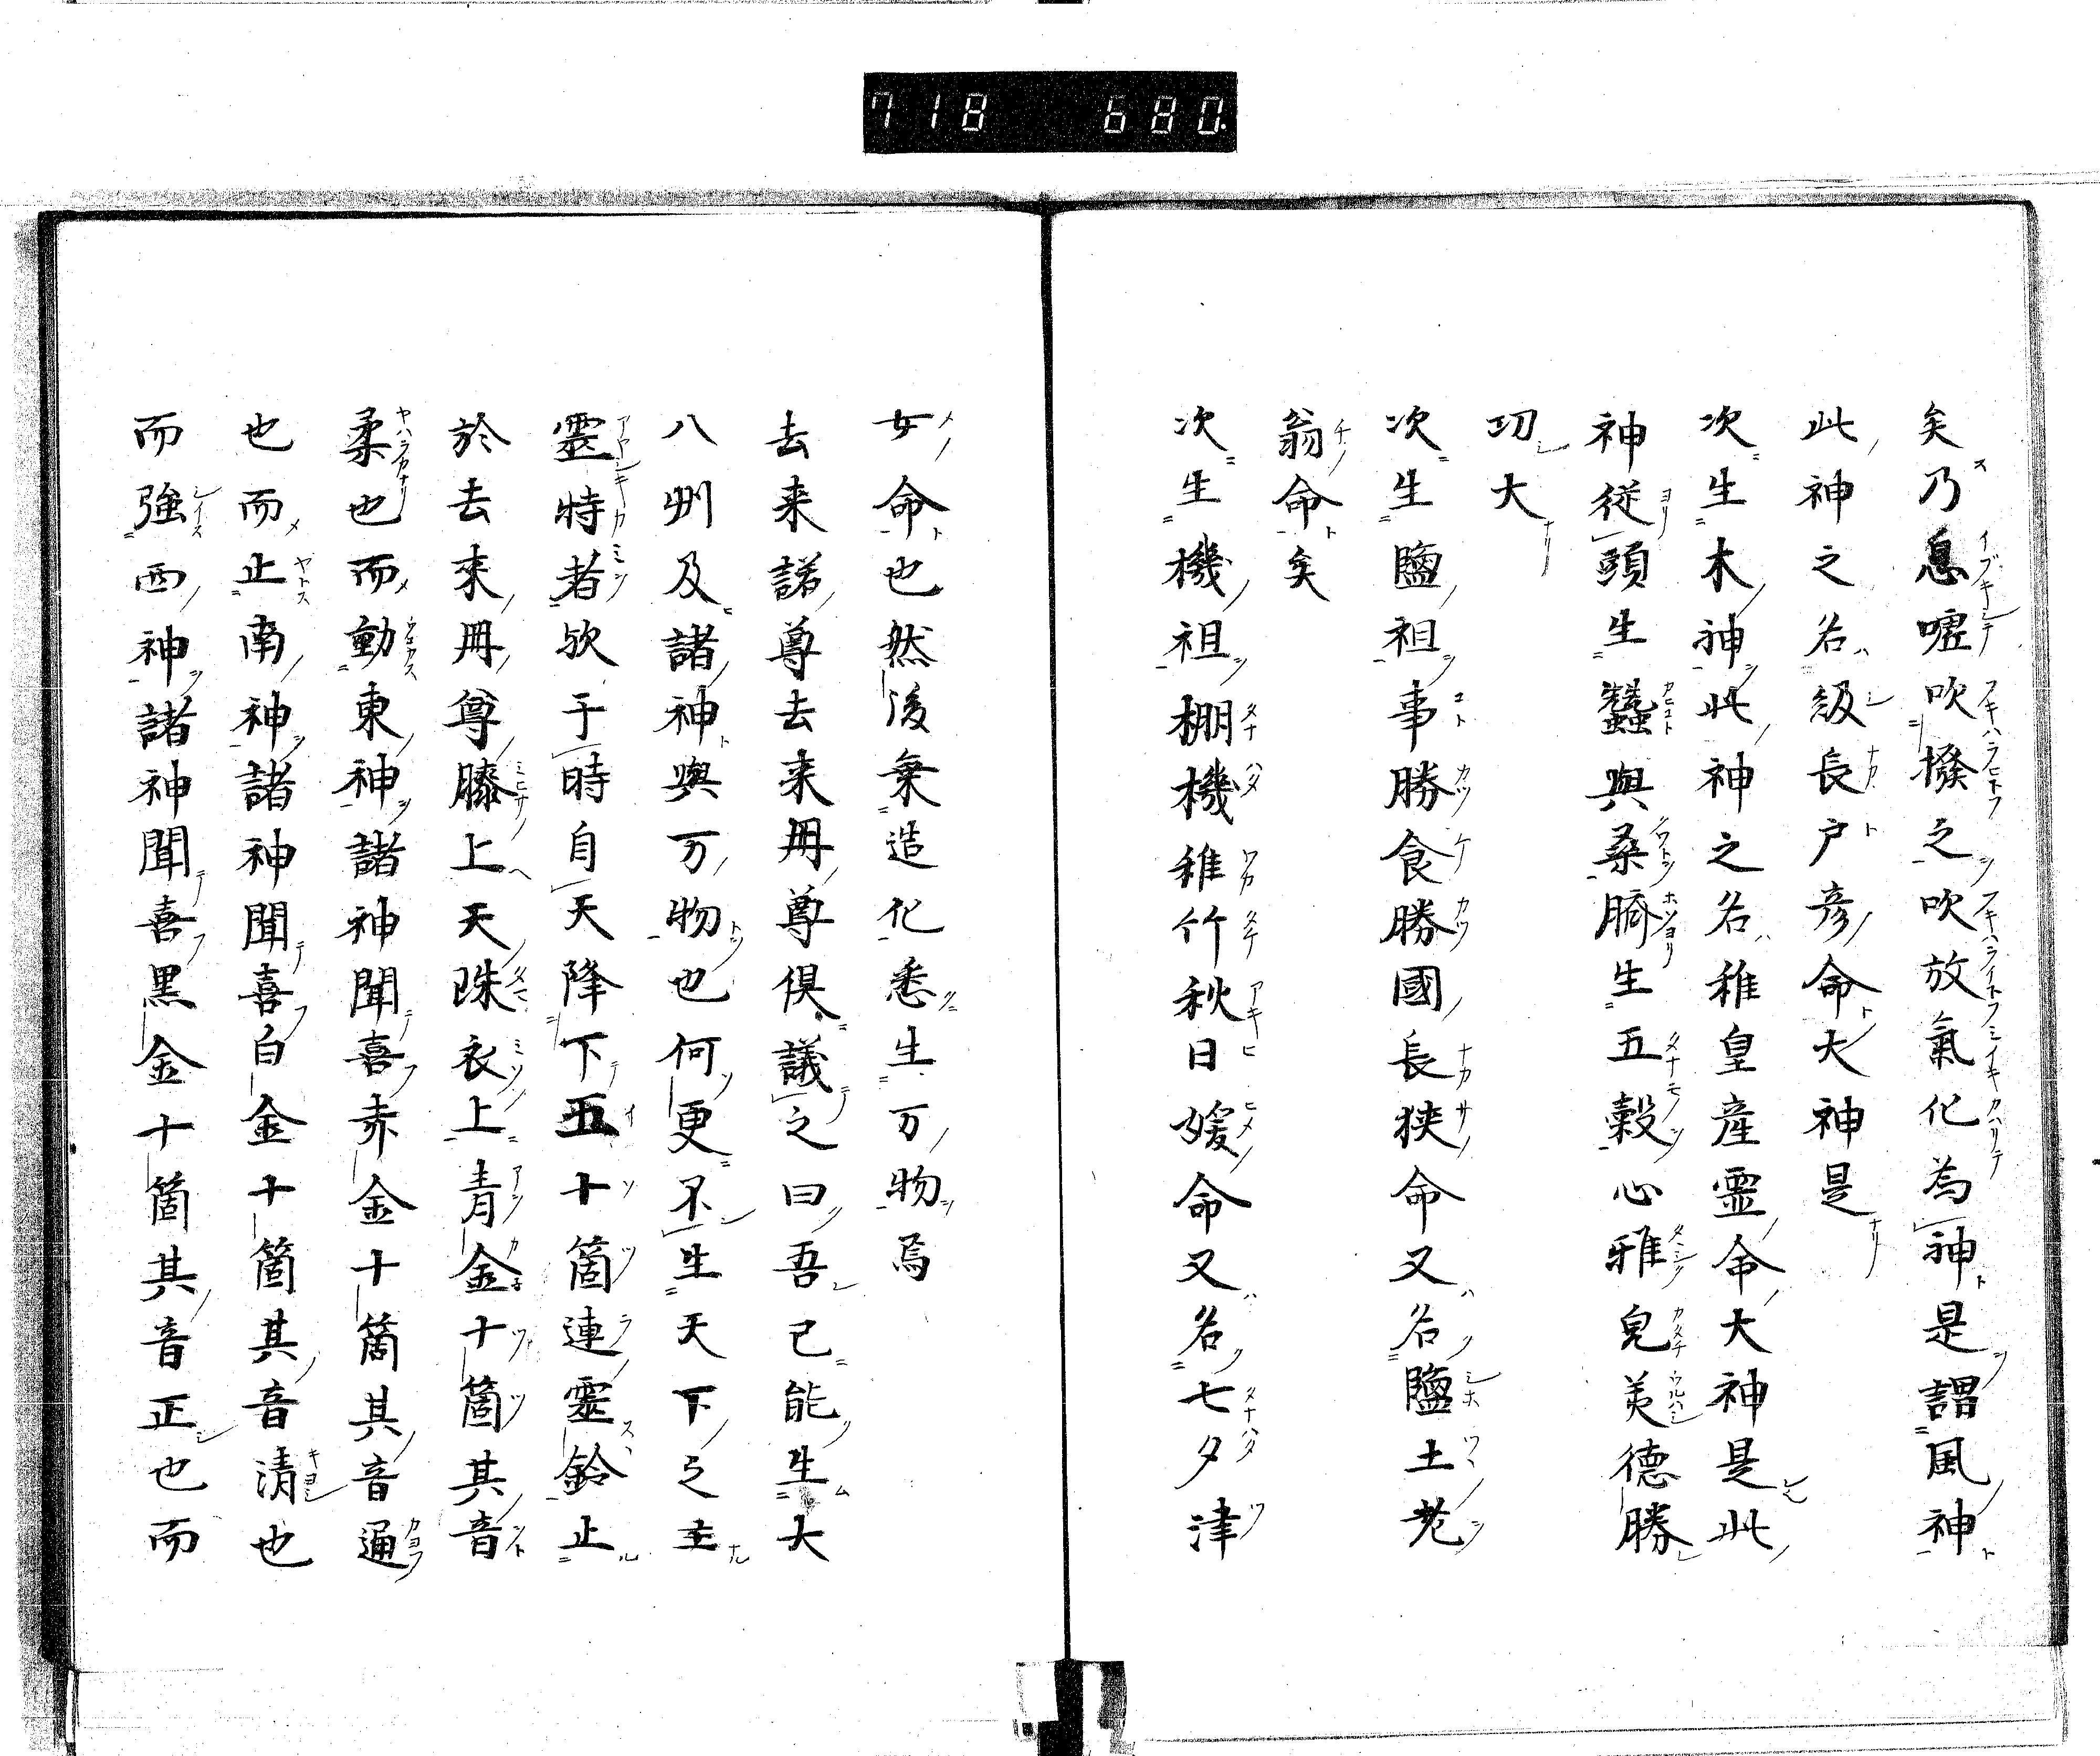 718 680.
矣乃息嘘吹撥之吹放氣化為神是謂風神
此神之名級長戸彦命大神是
次生木神此神之名稚皇産霊命大神是此
神従頭生蠶與桑臍生五穀心雅皃美徳勝
功大
次生鹽祖事勝食勝國長狭命又名鹽土老
翁命矣
次生機祖棚機稚竹秋日媛命又名七夕津
女命也然後棄造化悉生万物焉
去来諾尊去来冊尊倶議之曰吾已能生大
八州及諸神與万物也何更不生天下之主
霊特者欤于時自天降下五十箇連霊鈴止
於去来冊尊膝上天珠衣上青金十箇其音
柔也而動東神諸神聞喜赤金十箇其音通
也而止南神諸神聞喜白金十箇其音清也
而強西神諸神聞喜黒金十箇其音正也而